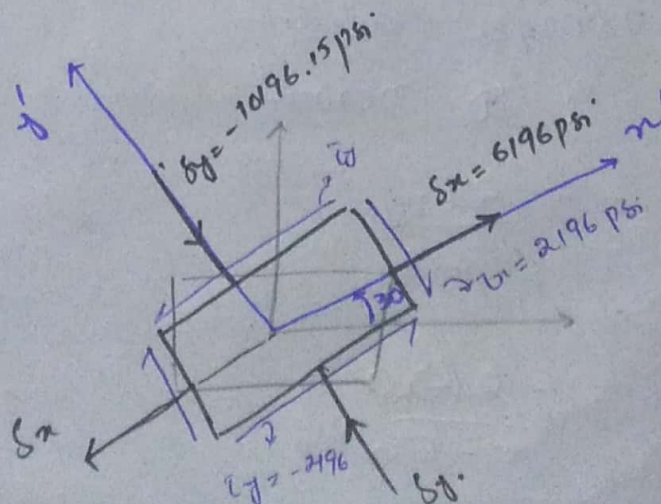 y'
Sy = -10196.15 psi
Sx = 6196 psi
x'
τy
= 2196 psi
30
Sx
τy = -2196
Sy.